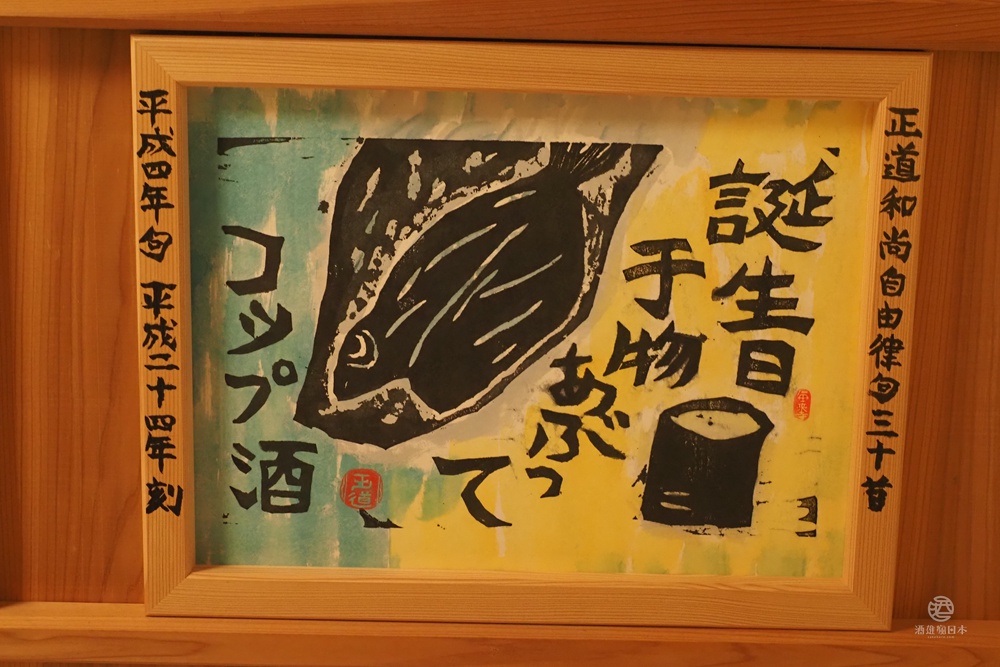 正道和尚自由律句三十首
誕生日
干物
あぶっ
て
コップ酒
正道
平成四年句 平成二十四年刻